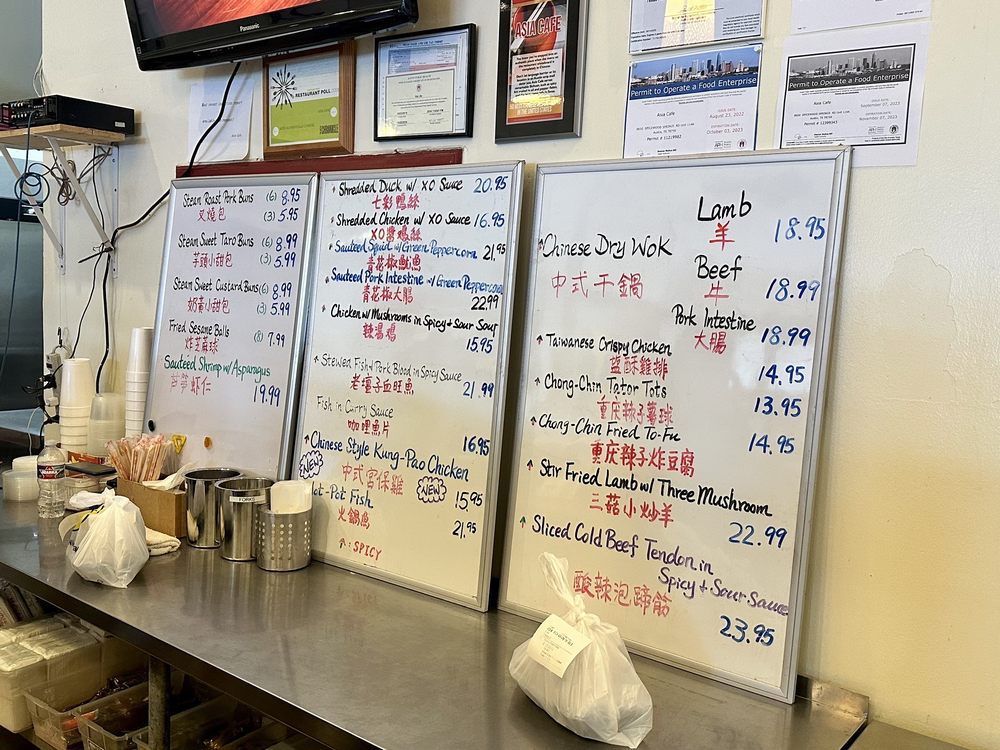 Panasonic
RESTAURANT POLL
ASIA CAFE
Permit to Operate a Food Enterprise
Asia Cafe
August 23, 2022
October 03, 2023
Permit to Operate a Food Enterprise
Asia Cafe
September 07, 2023
November 07, 2023
Steam Roast Pork Buns (6) 8.95
叉燒包 (3) 5.95
Steam Sweet Taro Buns (6) 8.99
芋頭小甜包 (3) 5.99
Steam Sweet Custard Buns (6) 8.99
奶黃小甜包 (3) 5.99
Fried Sesame Balls (8) 7.99
炸芝蔴球
Sauteed Shrimp w/ Asparagus
芦笋虾仁 19.99
Shredded Duck w/ XO Sauce 20.95
七彩鴨絲
Shredded Chicken w/ XO Sauce 16.95
XO醬鷄絲
Sauteed Squid w/ Green Peppercorn 21.95
青花椒魷魚
Sauteed Pork Intestine w/ Green Peppercorn
青花椒大腸 22.99
Chicken w/ Mushrooms in Spicy & Sour Soup
辣湯鷄 15.95
Stewed Fish & Pork Blood in Spicy Sauce
老壇子血旺魚 21.99
Fish in Curry Sauce
咖哩魚片 16.95
Chinese Style Kung-Pao Chicken
NEW 中式宮保雞 NEW 15.95
Hot-Pot Fish
火鍋魚 21.95
: SPICY
Lamb
羊 18.95
Chinese Dry Wok
中式干鍋
Beef
牛 18.99
Pork Intestine
大腸 18.99
Taiwanese Crispy Chicken
盐酥雞排 14.95
Chong-Chin Tator Tots
重庆辣子薯球 13.95
Chong-Chin Fried To-Fu
重庆辣子炸豆腐 14.95
Stir Fried Lamb w/ Three Mushroom
三菇小炒羊 22.99
Sliced Cold Beef Tendon in
Spicy & Sour Sauce
酸辣泡蹄筋
23.95
FORKS